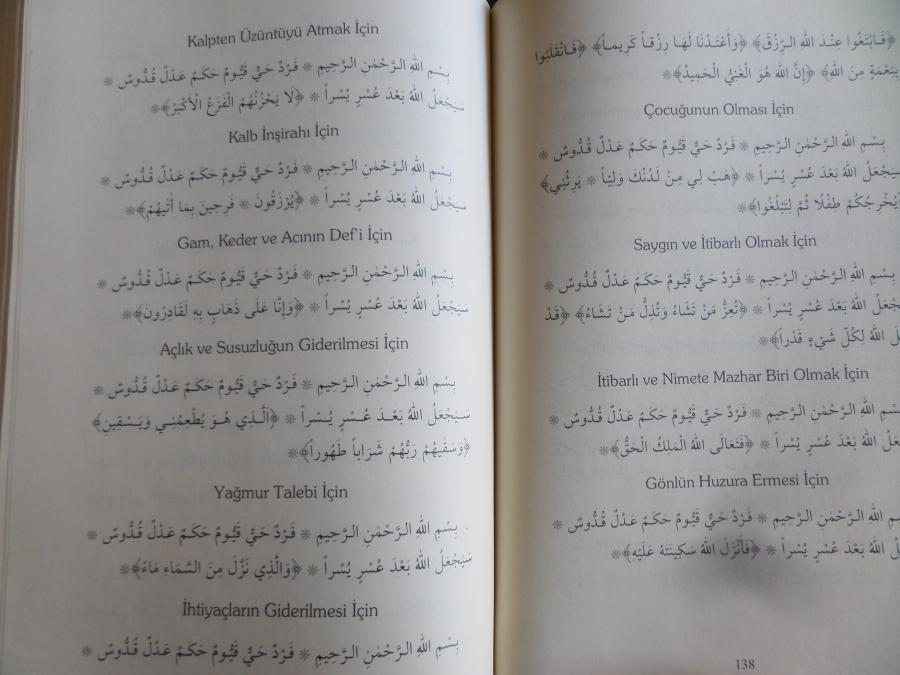 Kalpten Üzüntüyü Atmak İçin
بِسْمِ اللهِ الرَّحْمٰنِ الرَّحِيمِ ❊ فَرْدٌ حَيٌّ قَيُّومٌ حَكَمٌ عَدْلٌ قُدُّوسٌ ❊
سَيَجْعَلُ اللهُ بَعْدَ عُسْرٍ يُسْراً ❊ ﴿لَا يَحْزُنُهُمُ الْفَزَعُ الْأَكْبَرُ﴾❊
Kalb İnşirahı İçin
بِسْمِ اللهِ الرَّحْمٰنِ الرَّحِيمِ ❊ فَرْدٌ حَيٌّ قَيُّومٌ حَكَمٌ عَدْلٌ قُدُّوسٌ ❊
سَيَجْعَلُ اللهُ بَعْدَ عُسْرٍ يُسْراً ❊ ﴿يُرْزَقُونَ ❊ فَرِحِينَ بِمَا أٰتٰيهُمْ﴾❊
Gam, Keder ve Acının Def'i İçin
بِسْمِ اللهِ الرَّحْمٰنِ الرَّحِيمِ ❊ فَرْدٌ حَيٌّ قَيُّومٌ حَكَمٌ عَدْلٌ قُدُّوسٌ ❊
سَيَجْعَلُ اللهُ بَعْدَ عُسْرٍ يُسْراً ❊ ﴿وَإِنَّا عَلَى ذَهَابٍ بِهِ لَقَادِرُونَ﴾❊
Açlık ve Susuzluğun Giderilmesi İçin
بِسْمِ اللهِ الرَّحْمٰنِ الرَّحِيمِ ❊ فَرْدٌ حَيٌّ قَيُّومٌ حَكَمٌ عَدْلٌ قُدُّوسٌ ❊
سَيَجْعَلُ اللهُ بَعْدَ عُسْرٍ يُسْراً ❊ ﴿اَلَّذِي هُوَ يُطْعِمُنِي وَيَسْقِينِ﴾
﴿وَسَقٰيهُمْ رَبُّهُمْ شَرَاباً طَهُوراً﴾❊
Yağmur Talebi İçin
بِسْمِ اللهِ الرَّحْمٰنِ الرَّحِيمِ ❊ فَرْدٌ حَيٌّ قَيُّومٌ حَكَمٌ عَدْلٌ قُدُّوسٌ ❊
سَيَجْعَلُ اللهُ بَعْدَ عُسْرٍ يُسْراً ❊ ﴿وَالَّذِي نَزَّلَ مِنَ السَّمَاءِ مَاءً﴾❊
İhtiyaçların Giderilmesi İçin
بِسْمِ اللهِ الرَّحْمٰنِ الرَّحِيمِ ❊ فَرْدٌ حَيٌّ قَيُّومٌ حَكَمٌ عَدْلٌ قُدُّوسٌ ❊
﴿فَابْتَغُوا عِنْدَ اللهِ الرِّزْقَ﴾ ﴿وَأَعْتَدْنَا لَهَا رِزْقاً كَرِيماً﴾ ﴿فَانْقَلَبُوا
بِنِعْمَةٍ مِنَ اللهِ﴾ ﴿إِنَّ اللهَ هُوَ الْغَنِيُّ الْحَمِيدُ﴾❊
Çocuğunun Olması İçin
بِسْمِ اللهِ الرَّحْمٰنِ الرَّحِيمِ ❊ فَرْدٌ حَيٌّ قَيُّومٌ حَكَمٌ عَدْلٌ قُدُّوسٌ ❊
سَيَجْعَلُ اللهُ بَعْدَ عُسْرٍ يُسْراً ❊ ﴿هَبْ لِي مِنْ لَدُنْكَ وَلِيّاً ❊ يَرِثُنِي﴾
يُخْرِجُكُمْ طِفْلًا ثُمَّ لِتَبْلُغُوا﴾❊
Saygın ve İtibarlı Olmak İçin
بِسْمِ اللهِ الرَّحْمٰنِ الرَّحِيمِ ❊ فَرْدٌ حَيٌّ قَيُّومٌ حَكَمٌ عَدْلٌ قُدُّوسٌ ❊
جْعَلُ اللهُ بَعْدَ عُسْرٍ يُسْراً ❊ ﴿تُعِزُّ مَنْ تَشَاءُ وَتُذِلُّ مَنْ تَشَاءُ﴾ ﴿قَدْ
لَ اللهُ لِكُلِّ شَيْءٍ قَدْراً﴾❊
İtibarlı ve Nimete Mazhar Biri Olmak İçin
سْمِ اللهِ الرَّحْمٰنِ الرَّحِيمِ ❊ فَرْدٌ حَيٌّ قَيُّومٌ حَكَمٌ عَدْلٌ قُدُّوسٌ ❊
عَلُ اللهُ بَعْدَ عُسْرٍ يُسْراً ❊ ﴿فَتَعَالَى اللهُ الْمَلِكُ الْحَقُّ﴾❊
Gönlün Huzura Ermesi İçin
مِ اللهِ الرَّحْمٰنِ الرَّحِيمِ ❊ فَرْدٌ حَيٌّ قَيُّومٌ حَكَمٌ عَدْلٌ قُدُّوسٌ ❊
لُ اللهُ بَعْدَ عُسْرٍ يُسْراً ❊ ﴿فَأَنْزَلَ اللهُ سَكِينَتَهُ عَلَيْهِ﴾❊
138